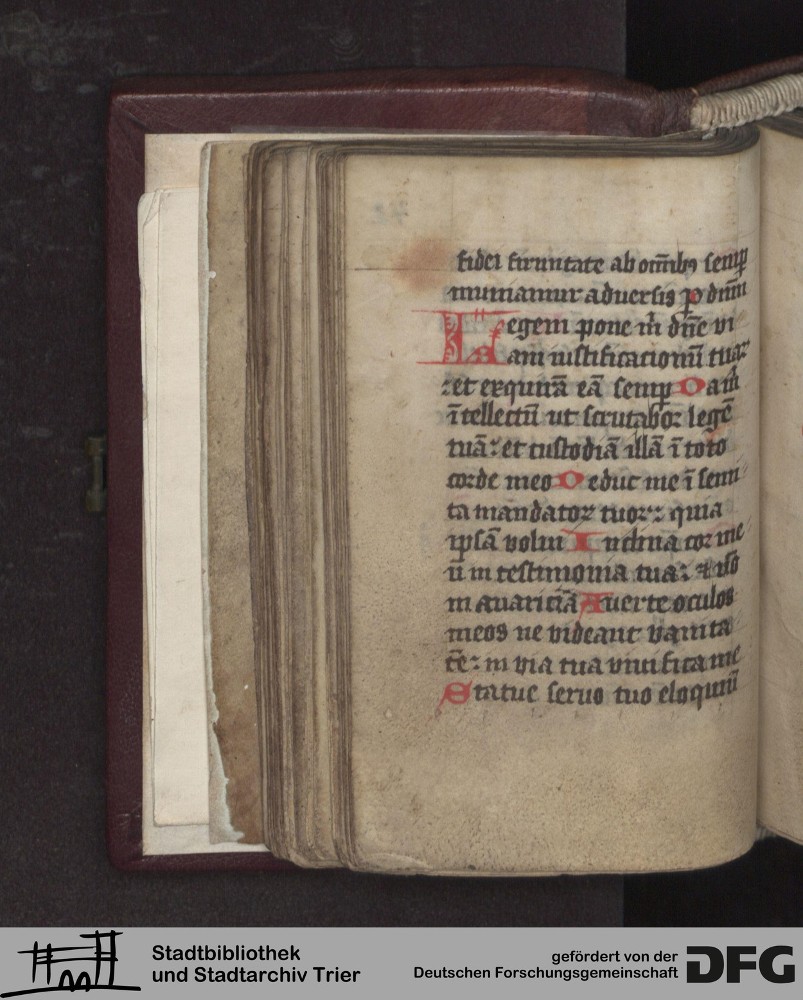 fidei firmitate ab om̄ibꝰ semꝑ
muniamur aduersis ꝑ dn̄m
Legem pone m̄ dn̄e vi
am iustificacionū tuaꝝ
: et exquirā eā semꝑ Da m̄
ītellectū ut scrutaboꝛ legē
tuā: et custodiā illā ī toto
coꝛde meo Deduc me ī semi
ta mandatoꝝ tuoꝝ: quia
ipsā volui Inclina coꝛ me
ū in testimonia tua: ⁊ nō
in auariciā Auerte oculos
meos ne videant vanita
tē: in via tua viuifica me
Statue seruo tuo eloquiū
Stadtbibliothek
und Stadtarchiv Trier
gefördert von der
Deutschen Forschungsgemeinschaft DFG